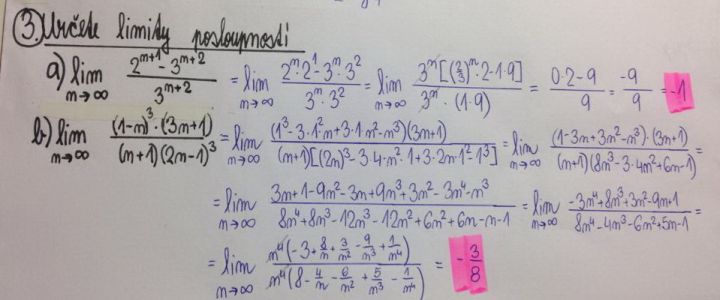 ③ Určete limity posloupností
a) lim n→∞ (2^{n+1} - 3^{n+2})/(3^{n+2}) = lim n→∞ (2^n·2^1 - 3^n·3^2)/(3^n·3^2) = lim n→∞ (3^n[(2/3)^n·2 - 1·9])/(3^n·(1·9)) = (0·2-9)/9 = -9/9 = -1
b) lim n→∞ ((1-n)^3·(3n+1))/((n+1)(2n-1)^3) = lim n→∞ ((1^3-3·1^2n+3·1·n^2-n^3)(3n+1))/((n+1)[(2n)^3-3·4·n^2·1+3·2n·1^2-1^3]) = lim n→∞ ((1-3n+3n^2-n^3)·(3n+1))/((n+1)(8n^3-3·4n^2+6n-1)) =
= lim n→∞ (3n+1-9n^2-3n+9n^3+3n^2-3n^4-n^3)/(8n^4+8n^3-12n^3-12n^2+6n^2+6n-n-1) = lim n→∞ (-3n^4+8n^3+3n^2-9n+1)/(8n^4-4n^3-6n^2+5n-1) =
= lim n→∞ (n^4(-3+8/n+3/n^2-9/n^3+1/n^4))/(n^4(8-4/n-6/n^2+5/n^3-1/n^4)) = -3/8